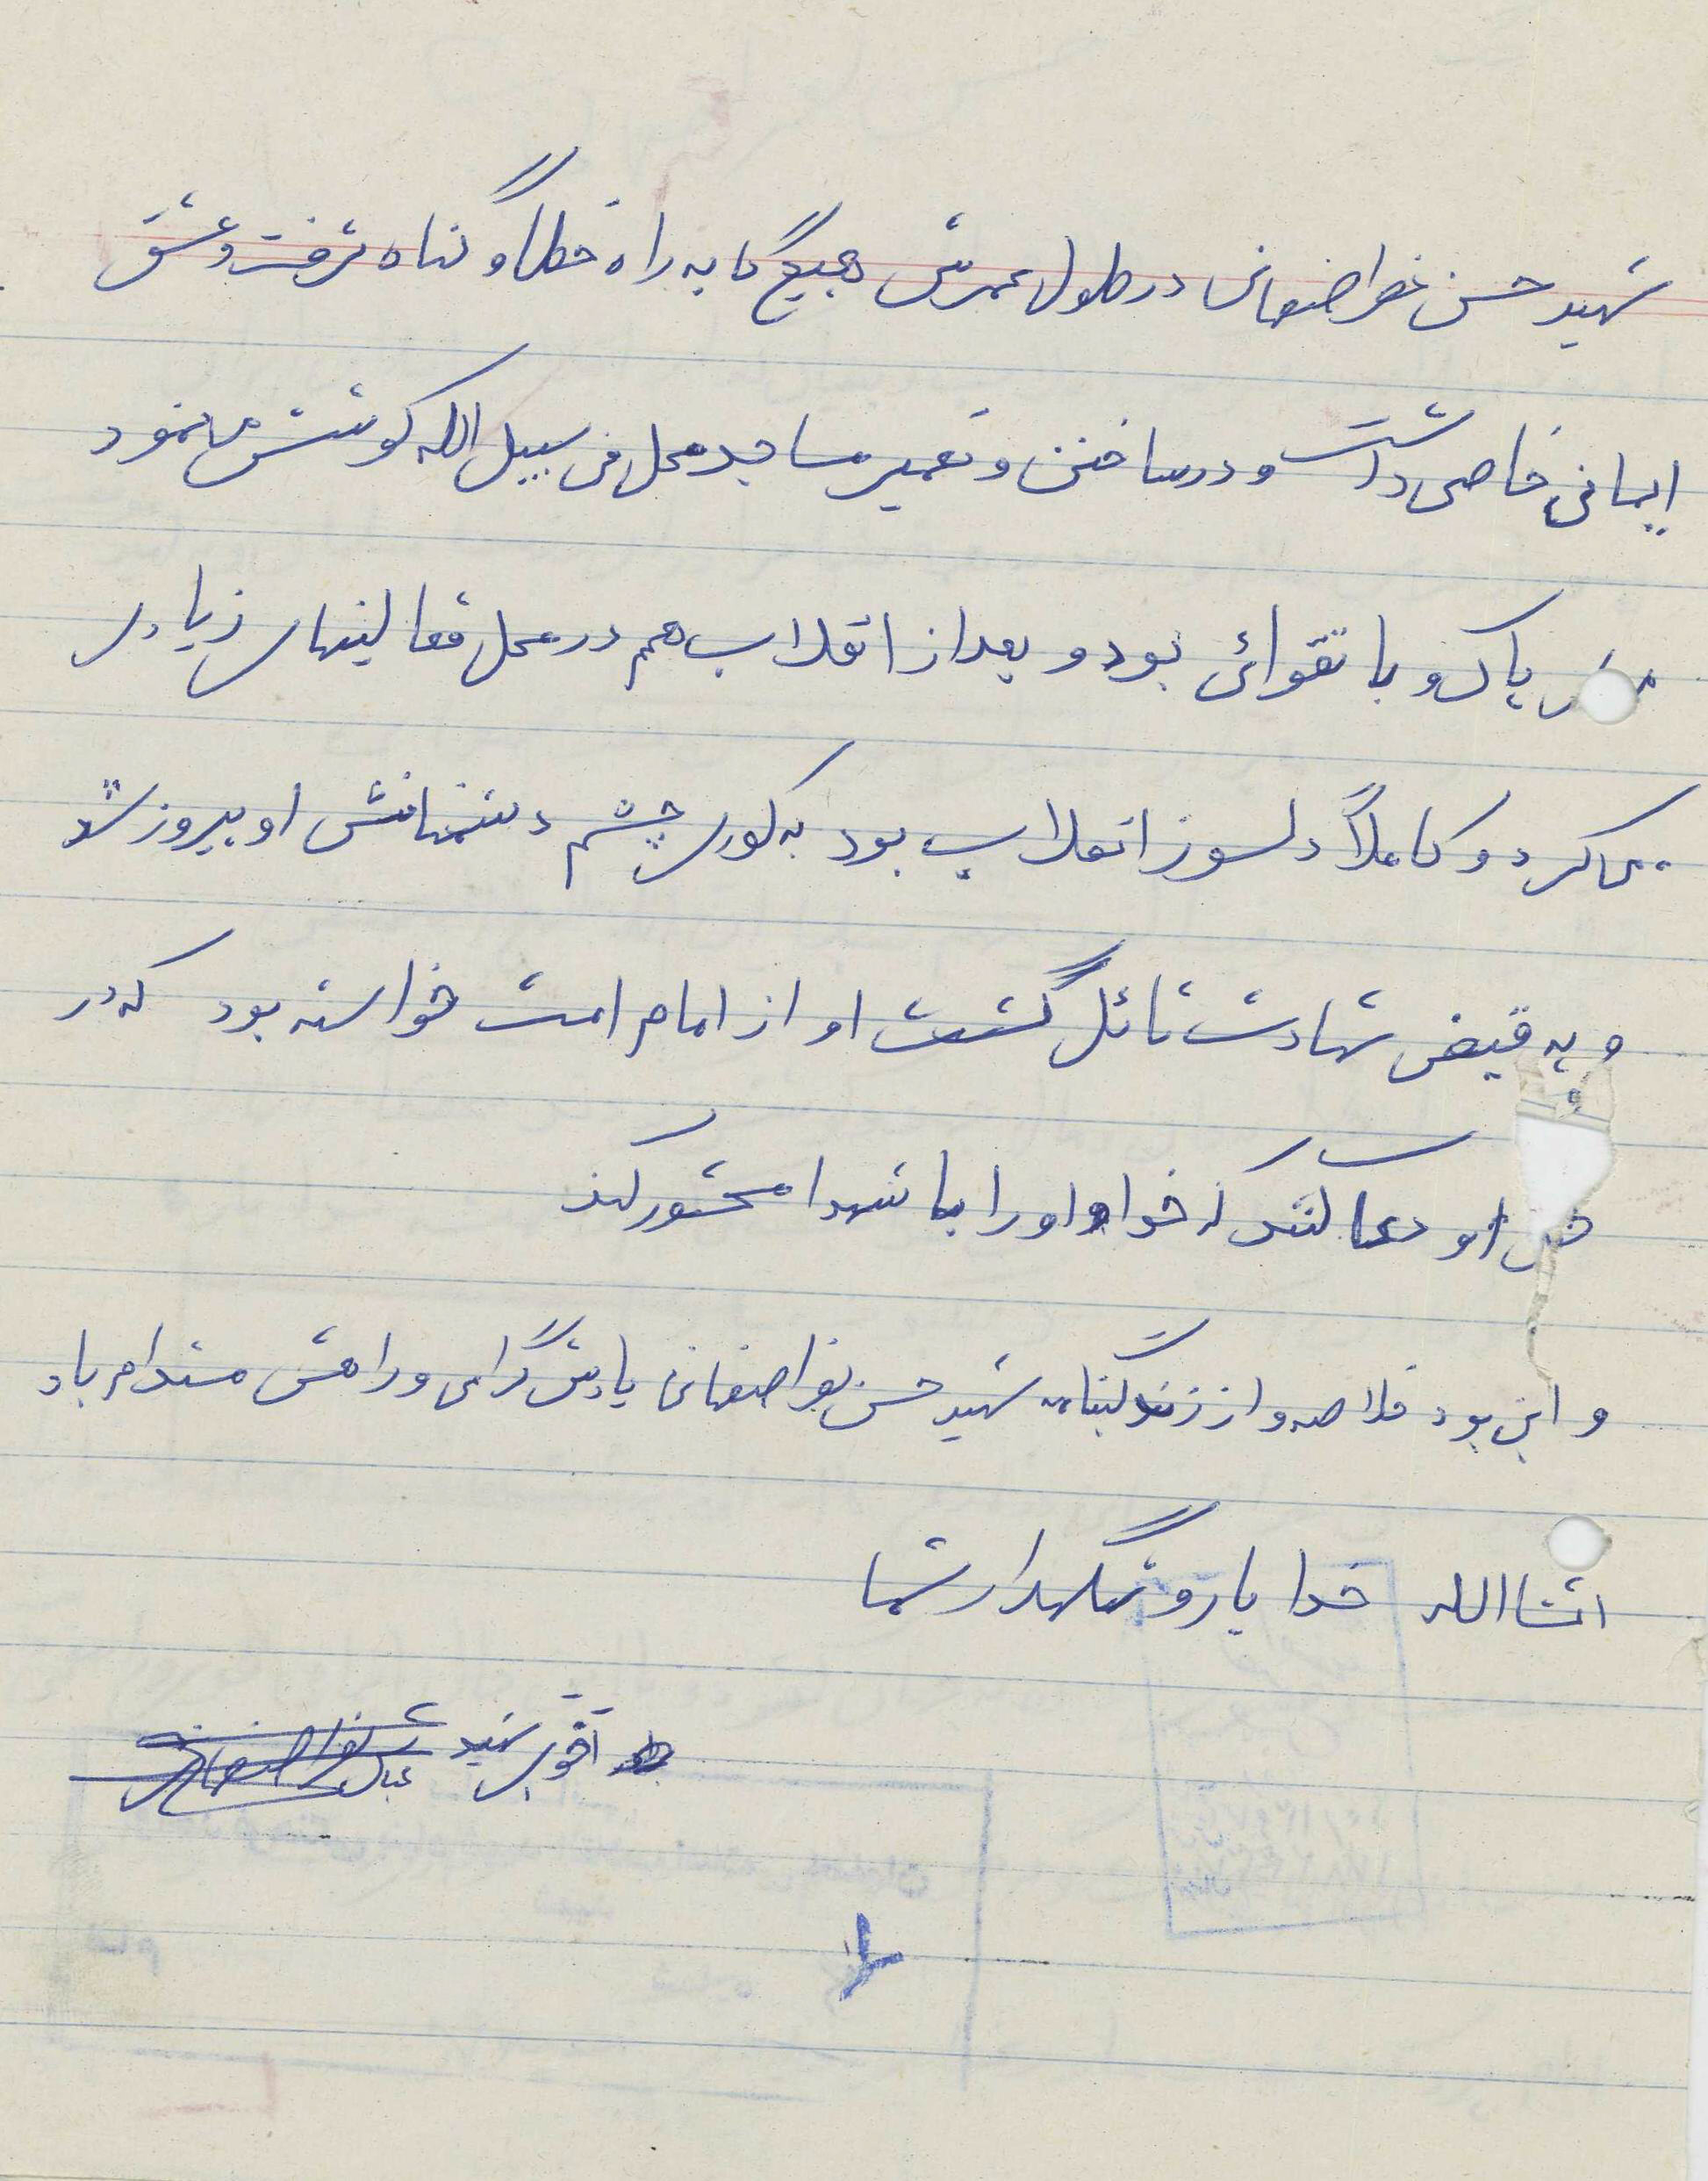 شهید حسن نفر اصفهانی در طول عمرش هیچگاه به راه خطا و گناه نرفت و عشق
ایمانی خاصی داشت و در ساختن و تعمیر مساجد محل فی سبیل الله کوشش می نمود
پاک و با تقوائی بود و بعد از انقلاب هم در محل فعالیتهای زیادی
می کرد و کاملاً دلسوز انقلاب بود به کوری چشم دشمنانش او پیروز شد
و به فیض شهادت نائل گشت او از امام امت خواسته بود که در
او دعا کنند که خدا او را با شهدا محشور کند
و این بود خلاصه و از زندگینامه شهید حسن نفر اصفهانی یادش گرامی و راهش مستدام باد
انشاالله خدا یار و نگهدار شما
اخوی شهید عباس نفر اصفهانی